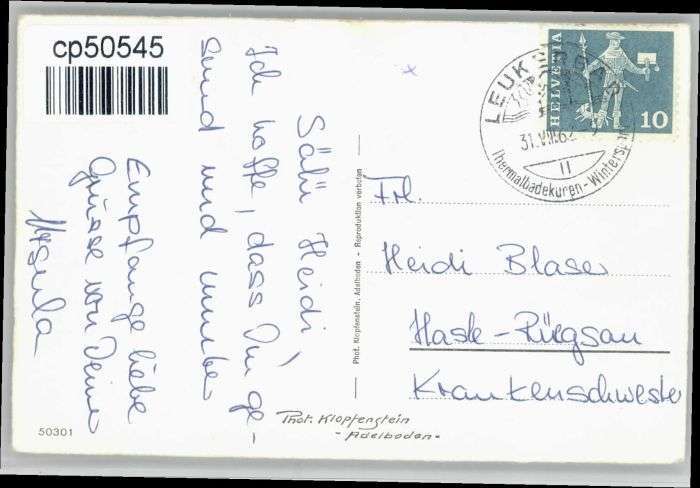 cp50545
Sälü Heidi,
Ich hoffe, dass Du ge-
sund und munter
Empfange liebe
Grüsse von Deine
Ursula
50301
Phot. Klopfenstein
- Adelboden -
Phot. Klopfenstein, Adelboden - Reproduktion verboten
HELVETIA
10
LEUK
31.VIII.6
11
Thermalbadekuren - Winters
Frl.
Heidi Blaser
Hasle-Rüegsau
Krankenschwester